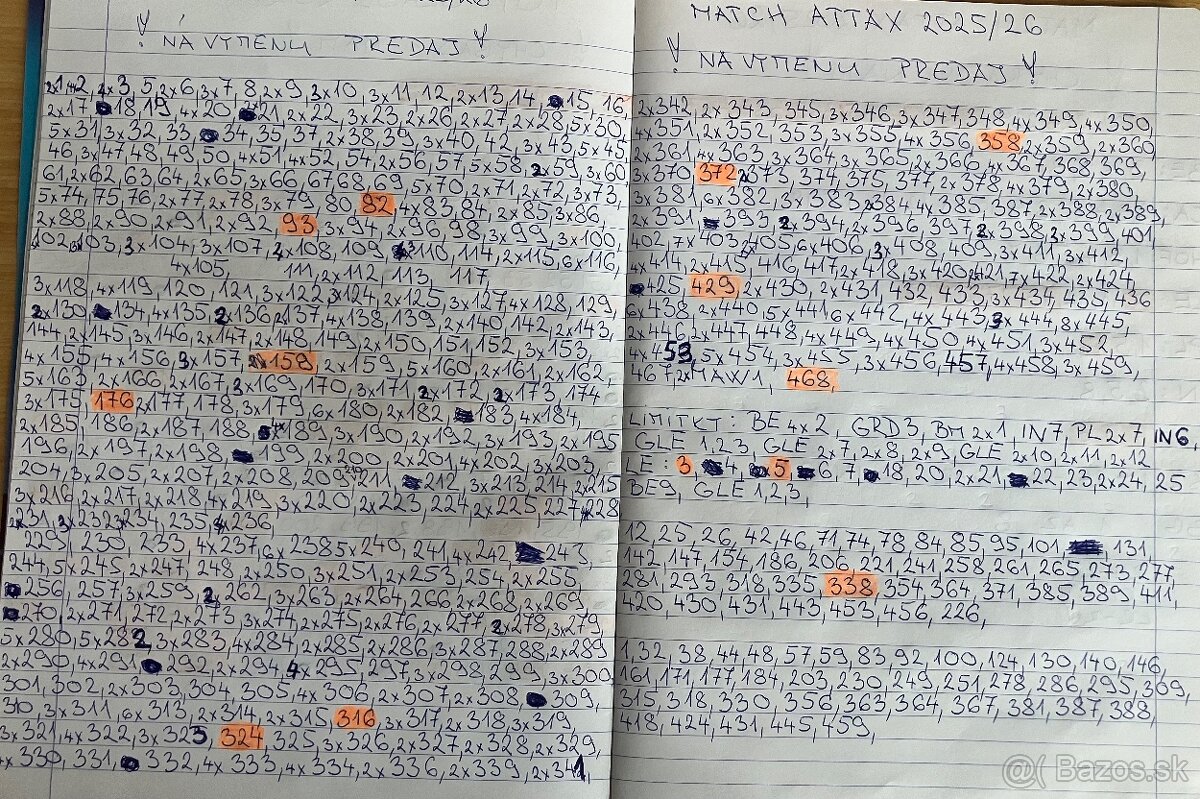 ! NA VÝMENU PREDAJ !
2x1, 4x2, 2x3, 5, 2x6, 3x7, 8, 2x9, 3x10, 3x11, 12, 2x13, 14, 15, 16
2x17, 18, 19, 4x20, 21, 2x22, 3x23, 2x26, 2x27, 2x28, 5x30,
5x31, 3x32, 33, 34, 35, 37, 2x38, 39, 3x40, 42, 3x43, 5x45,
46, 3x47, 48, 49, 50, 4x51, 4x52, 54, 2x56, 57, 5x58, 2x59, 3x60
61, 2x62, 63, 64, 2x65, 3x66, 67, 68, 69, 5x70, 2x71, 2x72, 3x73,
5x74, 75, 76, 2x77, 2x78, 3x79, 80, 82, 4x83, 84, 2x85, 3x86,
2x88, 2x90, 2x91, 2x92, 93, 3x94, 2x96, 98, 3x99, 3x100,
102, 103, 2x104, 3x107, 2x108, 109, 110, 114, 2x115, 6x116,
4x105, 111, 2x112, 113, 117,
3x118, 4x119, 120, 121, 3x122, 3x124, 2x125, 3x127, 4x128, 129,
2x130, 134, 4x135, 2x136, 2x137, 4x138, 139, 2x140, 142, 2x143,
144, 2x145, 3x146, 2x147, 2x148, 149, 2x150, 151, 152, 3x153,
4x155, 4x156, 3x157, 158, 2x159, 5x160, 2x161, 2x162,
5x163, 2x166, 2x167, 2x169, 170, 3x171, 2x172, 2x173, 174
3x175, 176, 2x177, 178, 3x179, 6x180, 2x182, 183, 4x184,
2x185, 186, 2x187, 188, 4x189, 3x190, 2x192, 3x193, 2x195
196, 2x197, 2x198, 199, 2x200, 2x201, 4x202, 3x203,
204, 3x205, 2x207, 2x208, 209, 211, 212, 3x213, 214, 2x215
3x216, 2x217, 2x218, 4x219, 3x220, 2x223, 224, 2x225, 227, 228
2x231, 232, 234, 235, 236
229, 230, 233, 4x237, 6x238, 5x240, 241, 4x242, 243,
244, 5x245, 2x247, 248, 2x250, 3x251, 2x253, 254, 2x255,
256, 257, 3x259, 2x262, 3x263, 2x264, 266, 2x268, 2x269
270, 2x271, 272, 2x273, 3x274, 2x275, 2x276, 2x277, 2x278, 3x279,
5x280, 5x282, 3x283, 4x284, 2x285, 2x286, 3x287, 288, 2x289
2x290, 4x291, 292, 2x294, 4x295, 297, 3x298, 299, 3x300
301, 302, 2x303, 304, 305, 4x306, 2x307, 2x308, 309,
310, 3x311, 6x313, 2x314, 2x315, 316, 3x317, 2x318, 3x319,
3x321, 4x322, 3x323, 324, 325, 3x326, 2x327, 2x328, 2x329,
4x330, 331, 332, 4x333, 4x334, 2x336, 2x339, 2x341,
MATCH ATTAX 2025/26
! NA VÝMENU PREDAJ !
2x342, 2x343, 345, 3x346, 3x347, 348, 4x349, 4x350,
4x351, 2x352, 353, 3x355, 4x356, 358, 2x359, 2x360
2x361, 4x363, 3x364, 3x365, 2x366, 4x367, 368, 369,
3x370, 372, 373, 374, 375, 377, 2x378, 4x379, 2x380,
3x381, 6x382, 3x383, 2x384, 4x385, 387, 2x388, 2x389,
2x391, 393, 2x394, 2x396, 397, 2x398, 2x399, 401,
402, 7x403, 405, 6x406, 3x408, 409, 3x411, 3x412,
4x414, 2x415, 416, 417, 2x418, 3x420, 421, 7x422, 2x424,
425, 429, 2x430, 2x431, 432, 433, 3x434, 435, 436
6x438, 2x440, 5x441, 6x442, 4x443, 3x444, 8x445,
2x446, 2x447, 448, 4x449, 4x450, 4x451, 3x452,
4x453, 5x454, 3x455, 3x456, 457, 4x458, 3x459,
467, 2xMAW1, 468,
LIMITKY: BE 4x2, GRD3, BM 2x1, IN7, PL 2x7, IN6
GLE 1,2,3, GLE 2x7, 2x8, 2x9, GLE 2x10, 2x11, 2x12
LE: 3, 4, 5, 6, 7, 18, 20, 2x21, 22, 23, 2x24, 25
BE9, GLE 1,2,3,
12, 25, 26, 42, 46, 71, 74, 78, 84, 85, 95, 101, 131,
142, 147, 154, 186, 206, 221, 241, 258, 261, 265, 273, 277,
281, 293, 318, 335, 338, 354, 364, 371, 385, 389, 411,
420, 430, 431, 443, 453, 456, 226,
1, 32, 38, 44, 48, 57, 59, 83, 92, 100, 124, 130, 140, 146,
161, 171, 177, 184, 203, 230, 249, 251, 278, 286, 295, 309,
315, 318, 330, 356, 363, 364, 367, 381, 387, 388,
418, 424, 431, 445, 459,
@( Bazos.sk